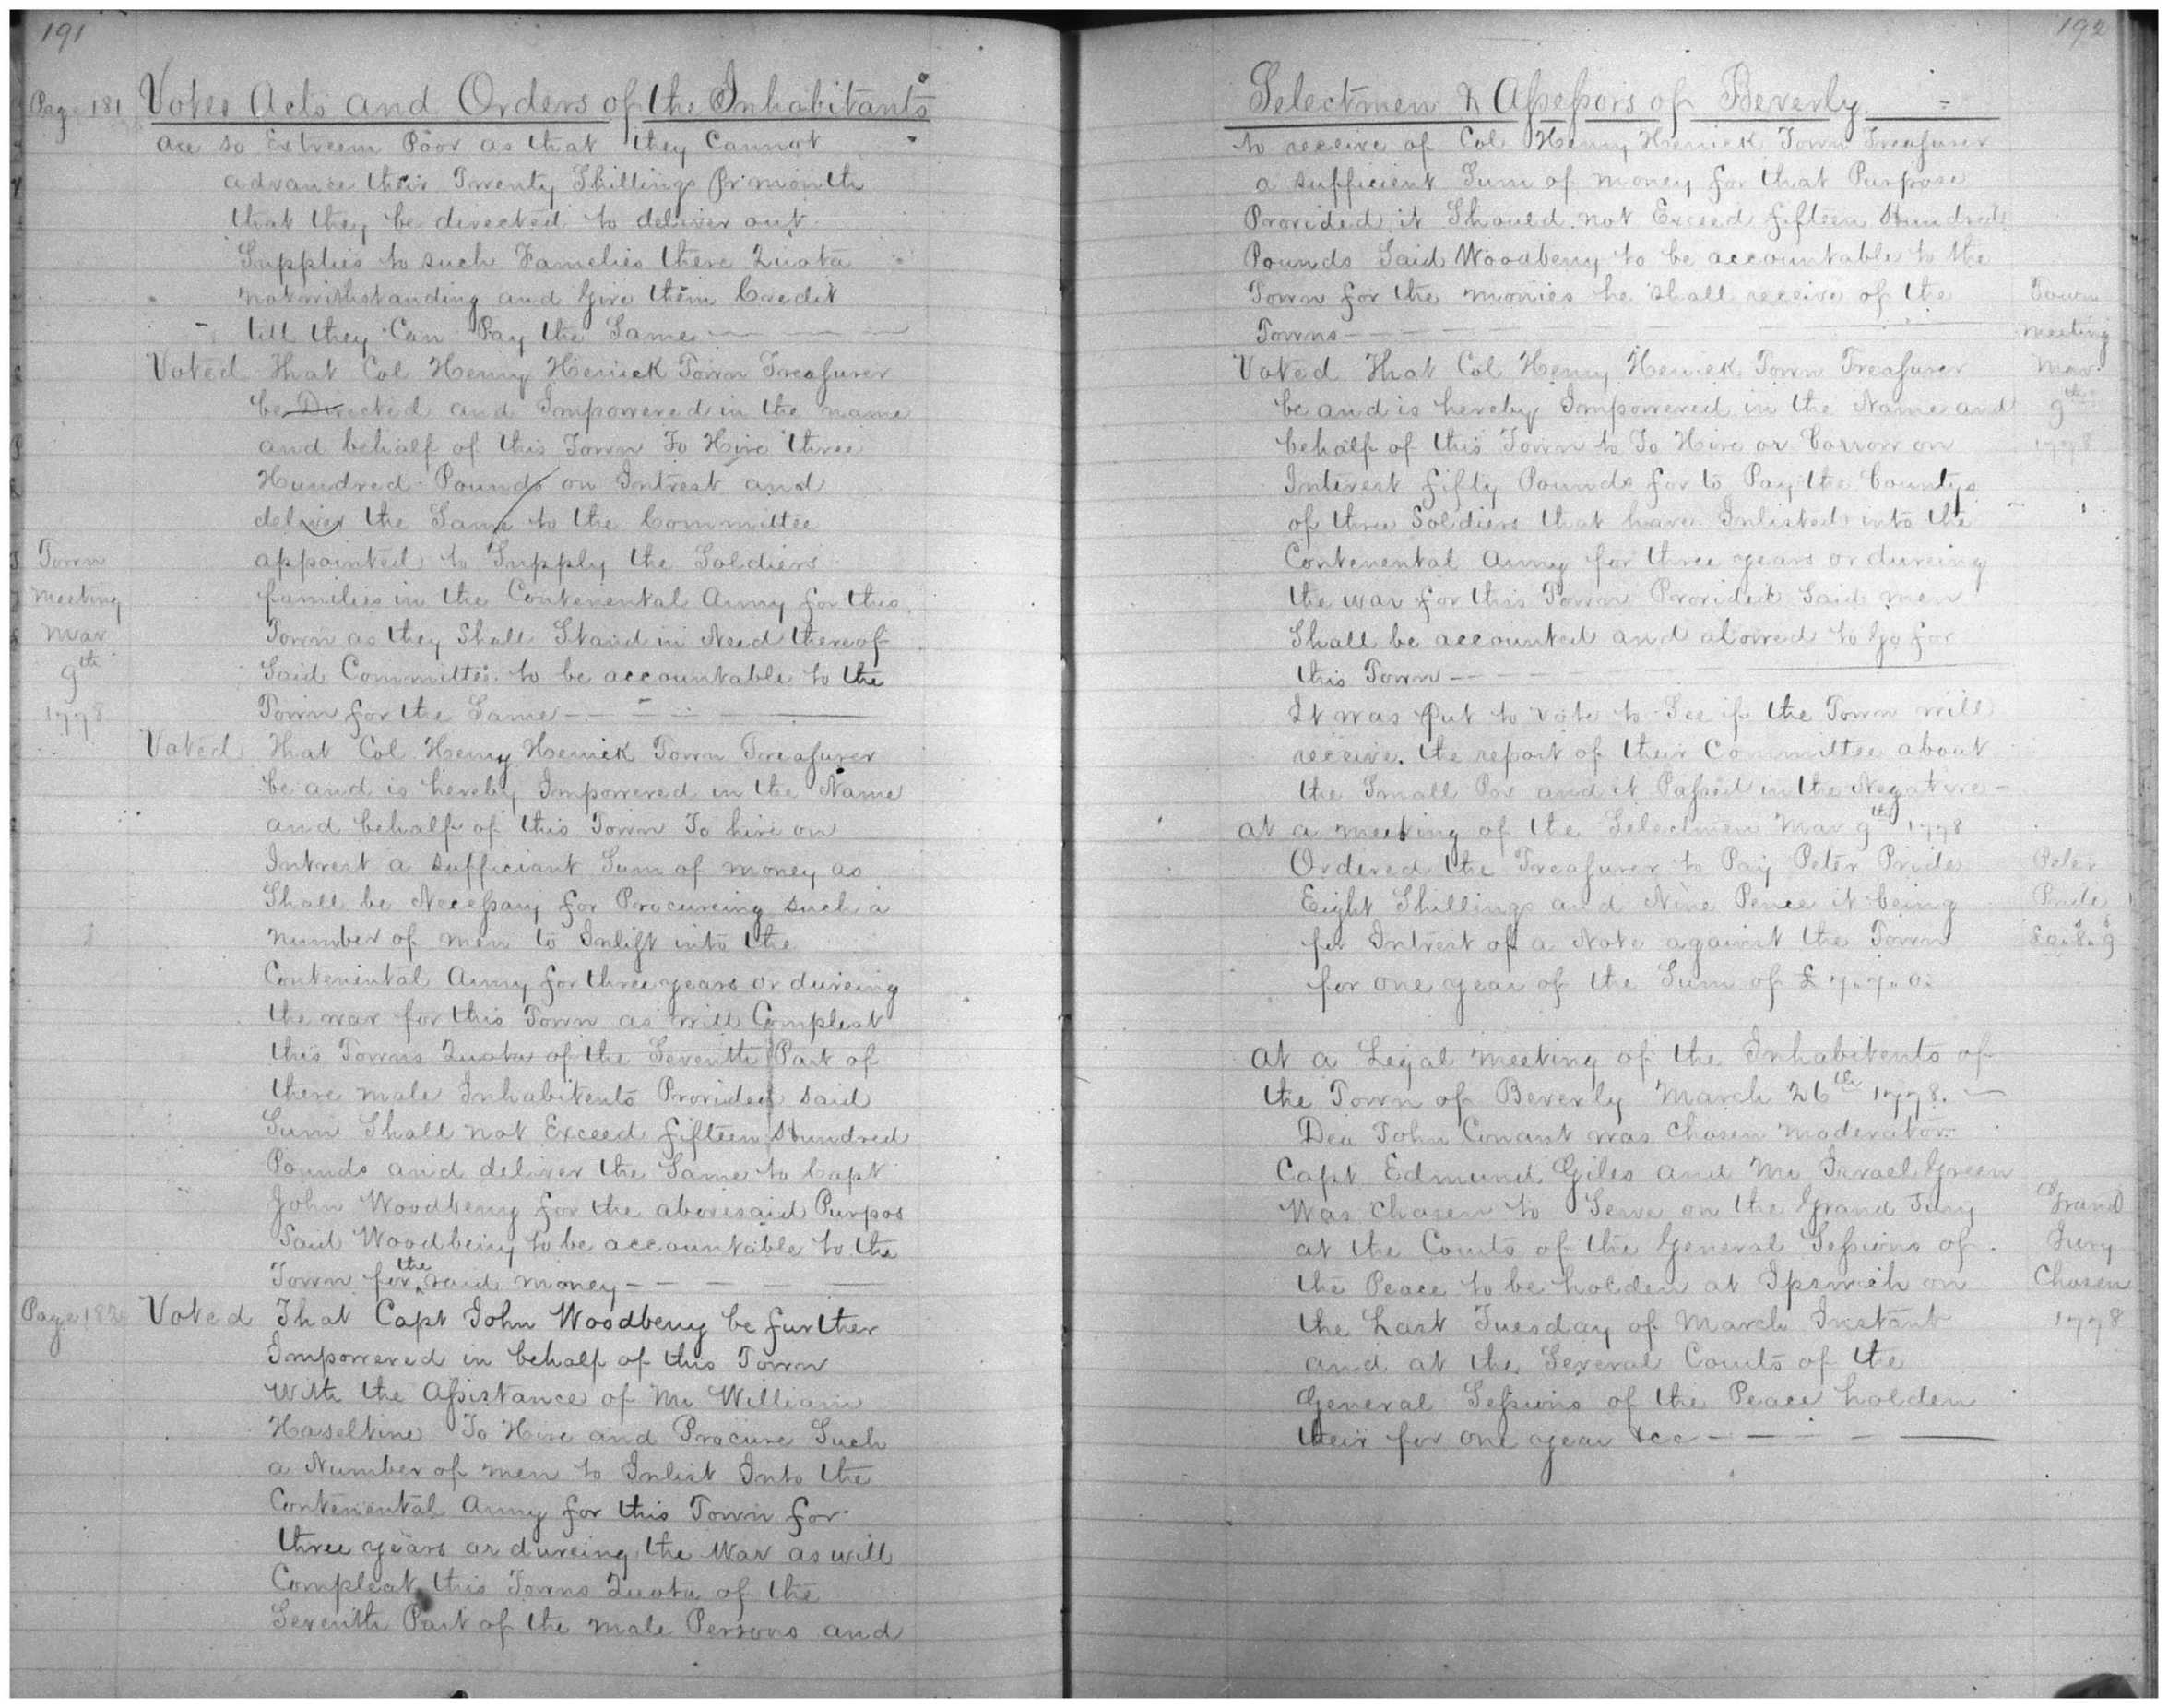 191
Page 181 Votes Acts and Orders of the Inhabitants
are so Extreem Poor as that they Cannot
advance their Twenty Shillings pr month
that they be directed to deliver out
Supplies to such Famelies there Quota
notwithstanding and Give them Credit
till they Can Pay the Same
Voted That Col Henry Herrick Town Treasurer
be Directed and Impowered in the name
and behalf of this Town To Hire three
Hundred Pounds on Intrest and
deliver the Same to the Committee
appointed to Supply the Soldiers
families in the Contenental Army for this
Town as they Shall Stand in Need thereof
Said Committe to be accountable to the
Town for the Same
Town
meeting
Mar
9th
1778
Voted That Col Henry Herrick Town Treasurer
be and is hereby Impowered in the Name
and behalf of this Town To hire on
Intrest a sufficiant Sum of money as
Shall be Necessary for Procureing such a
number of men to Inlist into the
Contenental Army for three years or dureing
the war for this Town as will Compleat
this Towns Quota of the Seventh Part of
there male Inhabitents Provided said
Sum Shall not Exceed fifteen Hundred
Pounds and deliver the Same to Capt
John Woodberry for the abovesaid Purpos
Said Woodberry to be accountable to the
Town for the said money
Page 182 Voted That Capt John Woodberry be further
Impowered in behalf of this Town
With the Assistance of Mr William
Haseltine To Hire and Procure Such
a Number of men to Inlist Into the
Contenental Army for this Town for
three years or dureing the War as will
Compleat this Towns Quota of the
Seventh Part of the male Persons and
192
Selectmen & Assessors of Beverly
to receive of Col Henry Herrick Town Treasurer
a sufficient Sum of money for that Purpose
Provided it Should not Exceed fifteen Hundred
Pounds Said Woodberry to be accountable to the
Town for the monies he shall receive of the
Towns
Voted That Col Henry Herrick Town Treasurer
be and is hereby Impowered in the Name and
behalf of this Town to To Hire or borrow on
Interest fifty Pounds for to Pay the bountys
of three Soldiers that have Inlisted into the
Contenental Army for three years or dureing
the war for this Town Provided Said men
Shall be accounted and alowed to Go for
this Town
Town
meeting
Mar
9th
1778
It was Put to vote to See if the Town will
receive the report of their Committee about
the Small Pox and it Passed in the Negative
at a meeting of the Selectmen Mar 9th 1778
Ordered the Treasurer to Pay Peter Pride
Eight Shillings and Nine Pence it being
for Intrest of a Note against the Town
for one year of the Sum of £ 7. 7. 0.
Peter
Pride
£0. 8. 9
at a Legal meeting of the Inhabitents of
the Town of Beverly March 26th 1778.
Dea John Conant was Chosen moderator
Capt Edmund Giles and Mr Israel Green
Was Chosen to Serve on the Grand Jury
at the Courts of the General Sessions of
the Peace to be holden at Ipswich on
the Last Tuesday of March Instant
and at the Several Courts of the
General Sessions of the Peace holden
their for one year &cc
Grand
Jury
Chosen
1778